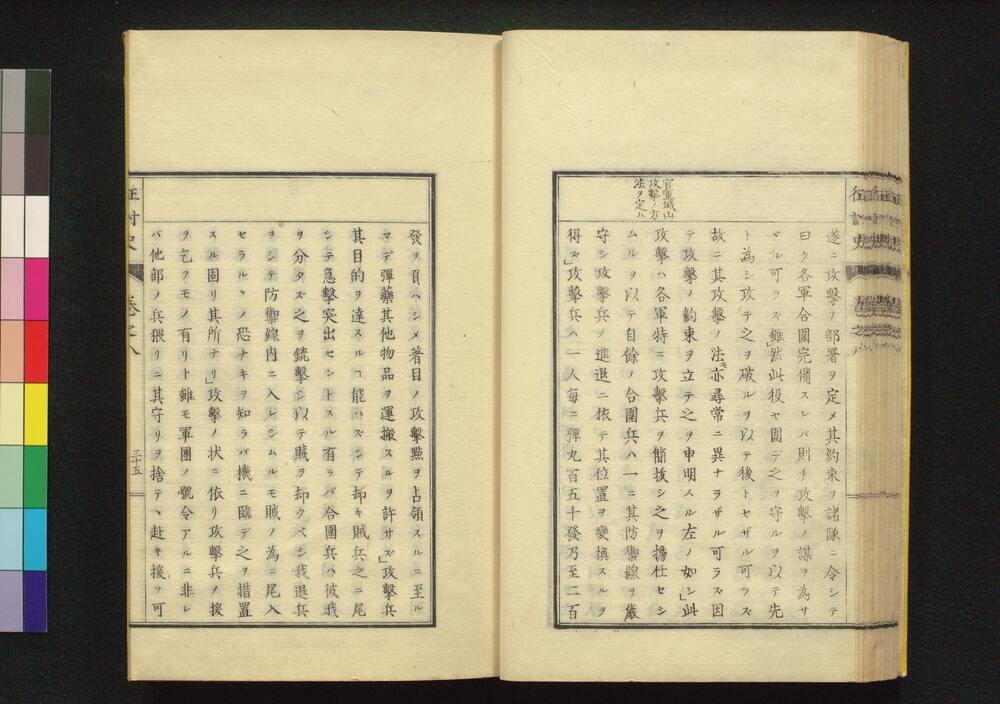 官軍城山
攻擊ノ方
法ヲ定ム
遂ニ攻擊ノ部署ヲ定メ其約束ヲ諸隊ニ令シテ
曰ク各軍合圍完備スレバ則チ攻擊ノ謀ヲ為サ
ヾル可ラズ雖然此役ヤ圍デ之ヲ守ルヲ以テ先
ト為シ攻テ之ヲ破ルヲ以テ後トセザル可ラズ
故ニ其攻擊ノ法モ亦尋常ニ異ナラザル可ラズ因
テ攻擊ノ約束ヲ立テ之ヲ申明スル左ノ如シ」此
攻擊ハ各軍特ニ攻擊兵ヲ簡拔シ之ヲ擔任セシ
ムルヲ以テ自餘ノ合圍兵ハ一ニ其防禦線ヲ嚴
守シ攻擊兵ノ進退ニ依テ其位置ヲ變換スルヲ
得ズ」攻擊兵ハ一人每ニ彈丸百五十發乃至二百
發ヲ負ハシメ著目ノ攻擊點ヲ占領スルニ至ル
マデ彈藥其他物品ヲ運搬スルヲ許サズ」攻擊兵
其目的ヲ達スルヿ能ハズシテ却キ賊兵之ニ尾
シテ急擊突出セントスル有ラバ合圍兵ハ彼我
ヲ分タズ之ヲ銃擊シ以テ賊ヲ却クベシ我退兵
ヲシテ防禦線内ニ入レシムルモ賊ノ為ニ尾入
セラルヽノ恐ナキヲ知ラバ機ニ臨デ之ヲ措置
スル固リ其所ナリ」攻擊ノ状ニ依リ攻擊兵ノ援
ヲ乞フモノ有リト雖モ軍團ノ號令アルニ非レ
バ他部ノ兵猥リニ其守リヲ捨テヽ赴キ援フ可
征討史
卷之八
三十五